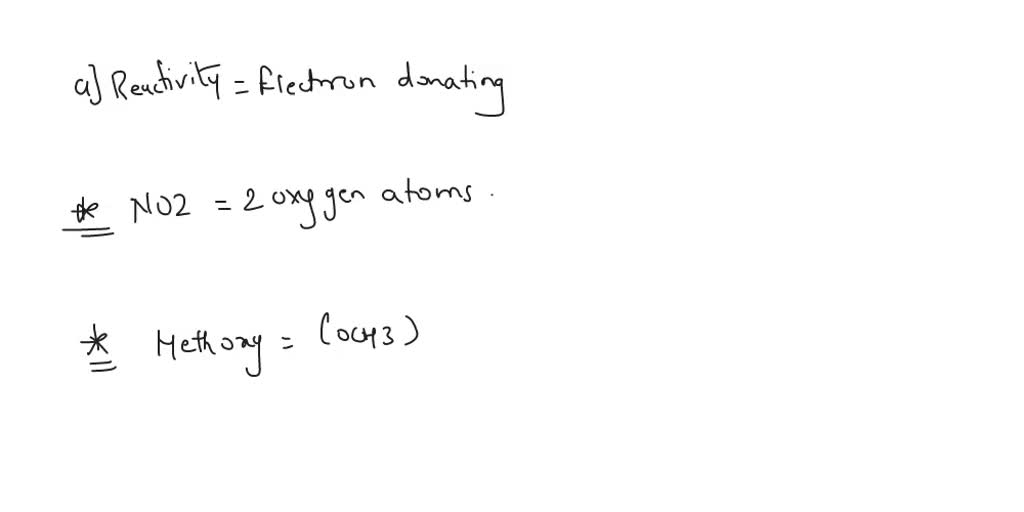 a] Reactivity = Electron donating
* NO2 = 2 oxygen atoms.
* Methoxy = (OCH3)